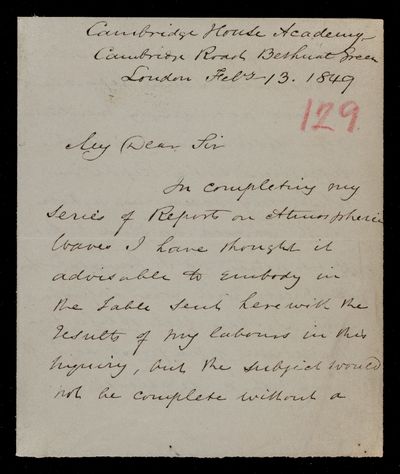 Cambridge House Academy
Cambridge Road Bethnal Green
London Feby 13. 1849
129
My Dear Sir
In completing my
series of Reports on Atmospheric
Waves I have thought it
advisable to embody in
the Table sent herewith the
results of my labours in this
inquiry, but the subject would
not be complete without a